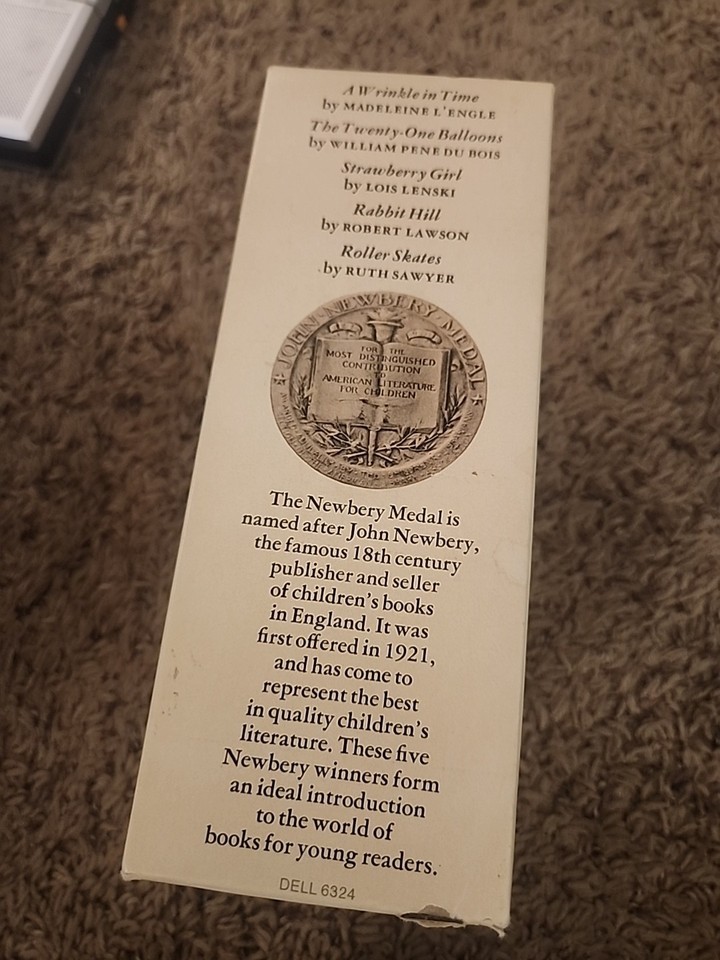 A Wrinkle in Time
by MADELEINE L'ENGLE
The Twenty-One Balloons
by WILLIAM PENE DU BOIS
Strawberry Girl
by LOIS LENSKI
Rabbit Hill
by ROBERT LAWSON
Roller Skates
by RUTH SAWYER
JOHN NEWBERY MEDAL
FOR THE
MOST DISTINGUISHED
CONTRIBUTION
TO
AMERICAN LITERATURE
FOR CHILDREN
The Newbery Medal is
named after John Newbery,
the famous 18th century
publisher and seller
of children's books
in England. It was
first offered in 1921,
and has come to
represent the best
in quality children's
literature. These five
Newbery winners form
an ideal introduction
to the world of
books for young readers.
DELL 6324